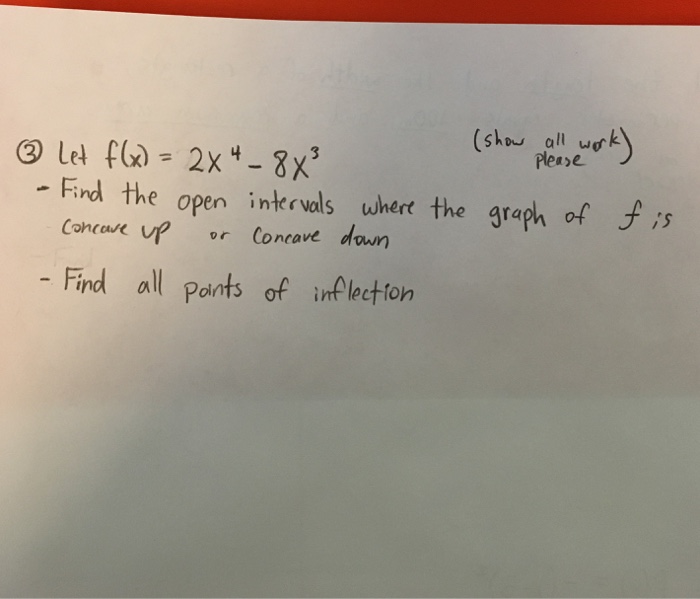 ③ Let f(x) = 2x⁴ - 8x³ (show all work)
please
- Find the open intervals where the graph of f is
Concave up or Concave down
- Find all points of inflection